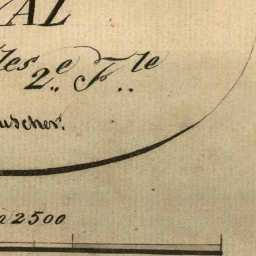 VAL
les 2.e F.lle
uscher.
2500